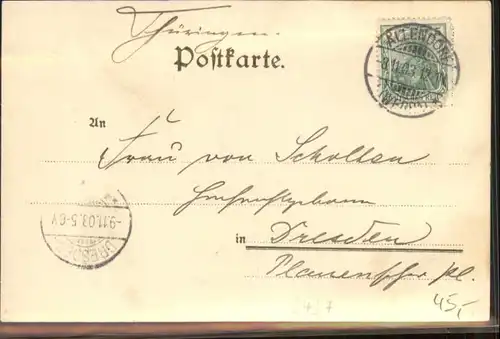 Thüringen.
Postkarte.
ALLENDORF
8.11.03
(WERRA)
An
Frau von Scholten
in Dresden
Plauenscher Pl.
DRESDEN
-9.11.03.5-6V
45,-